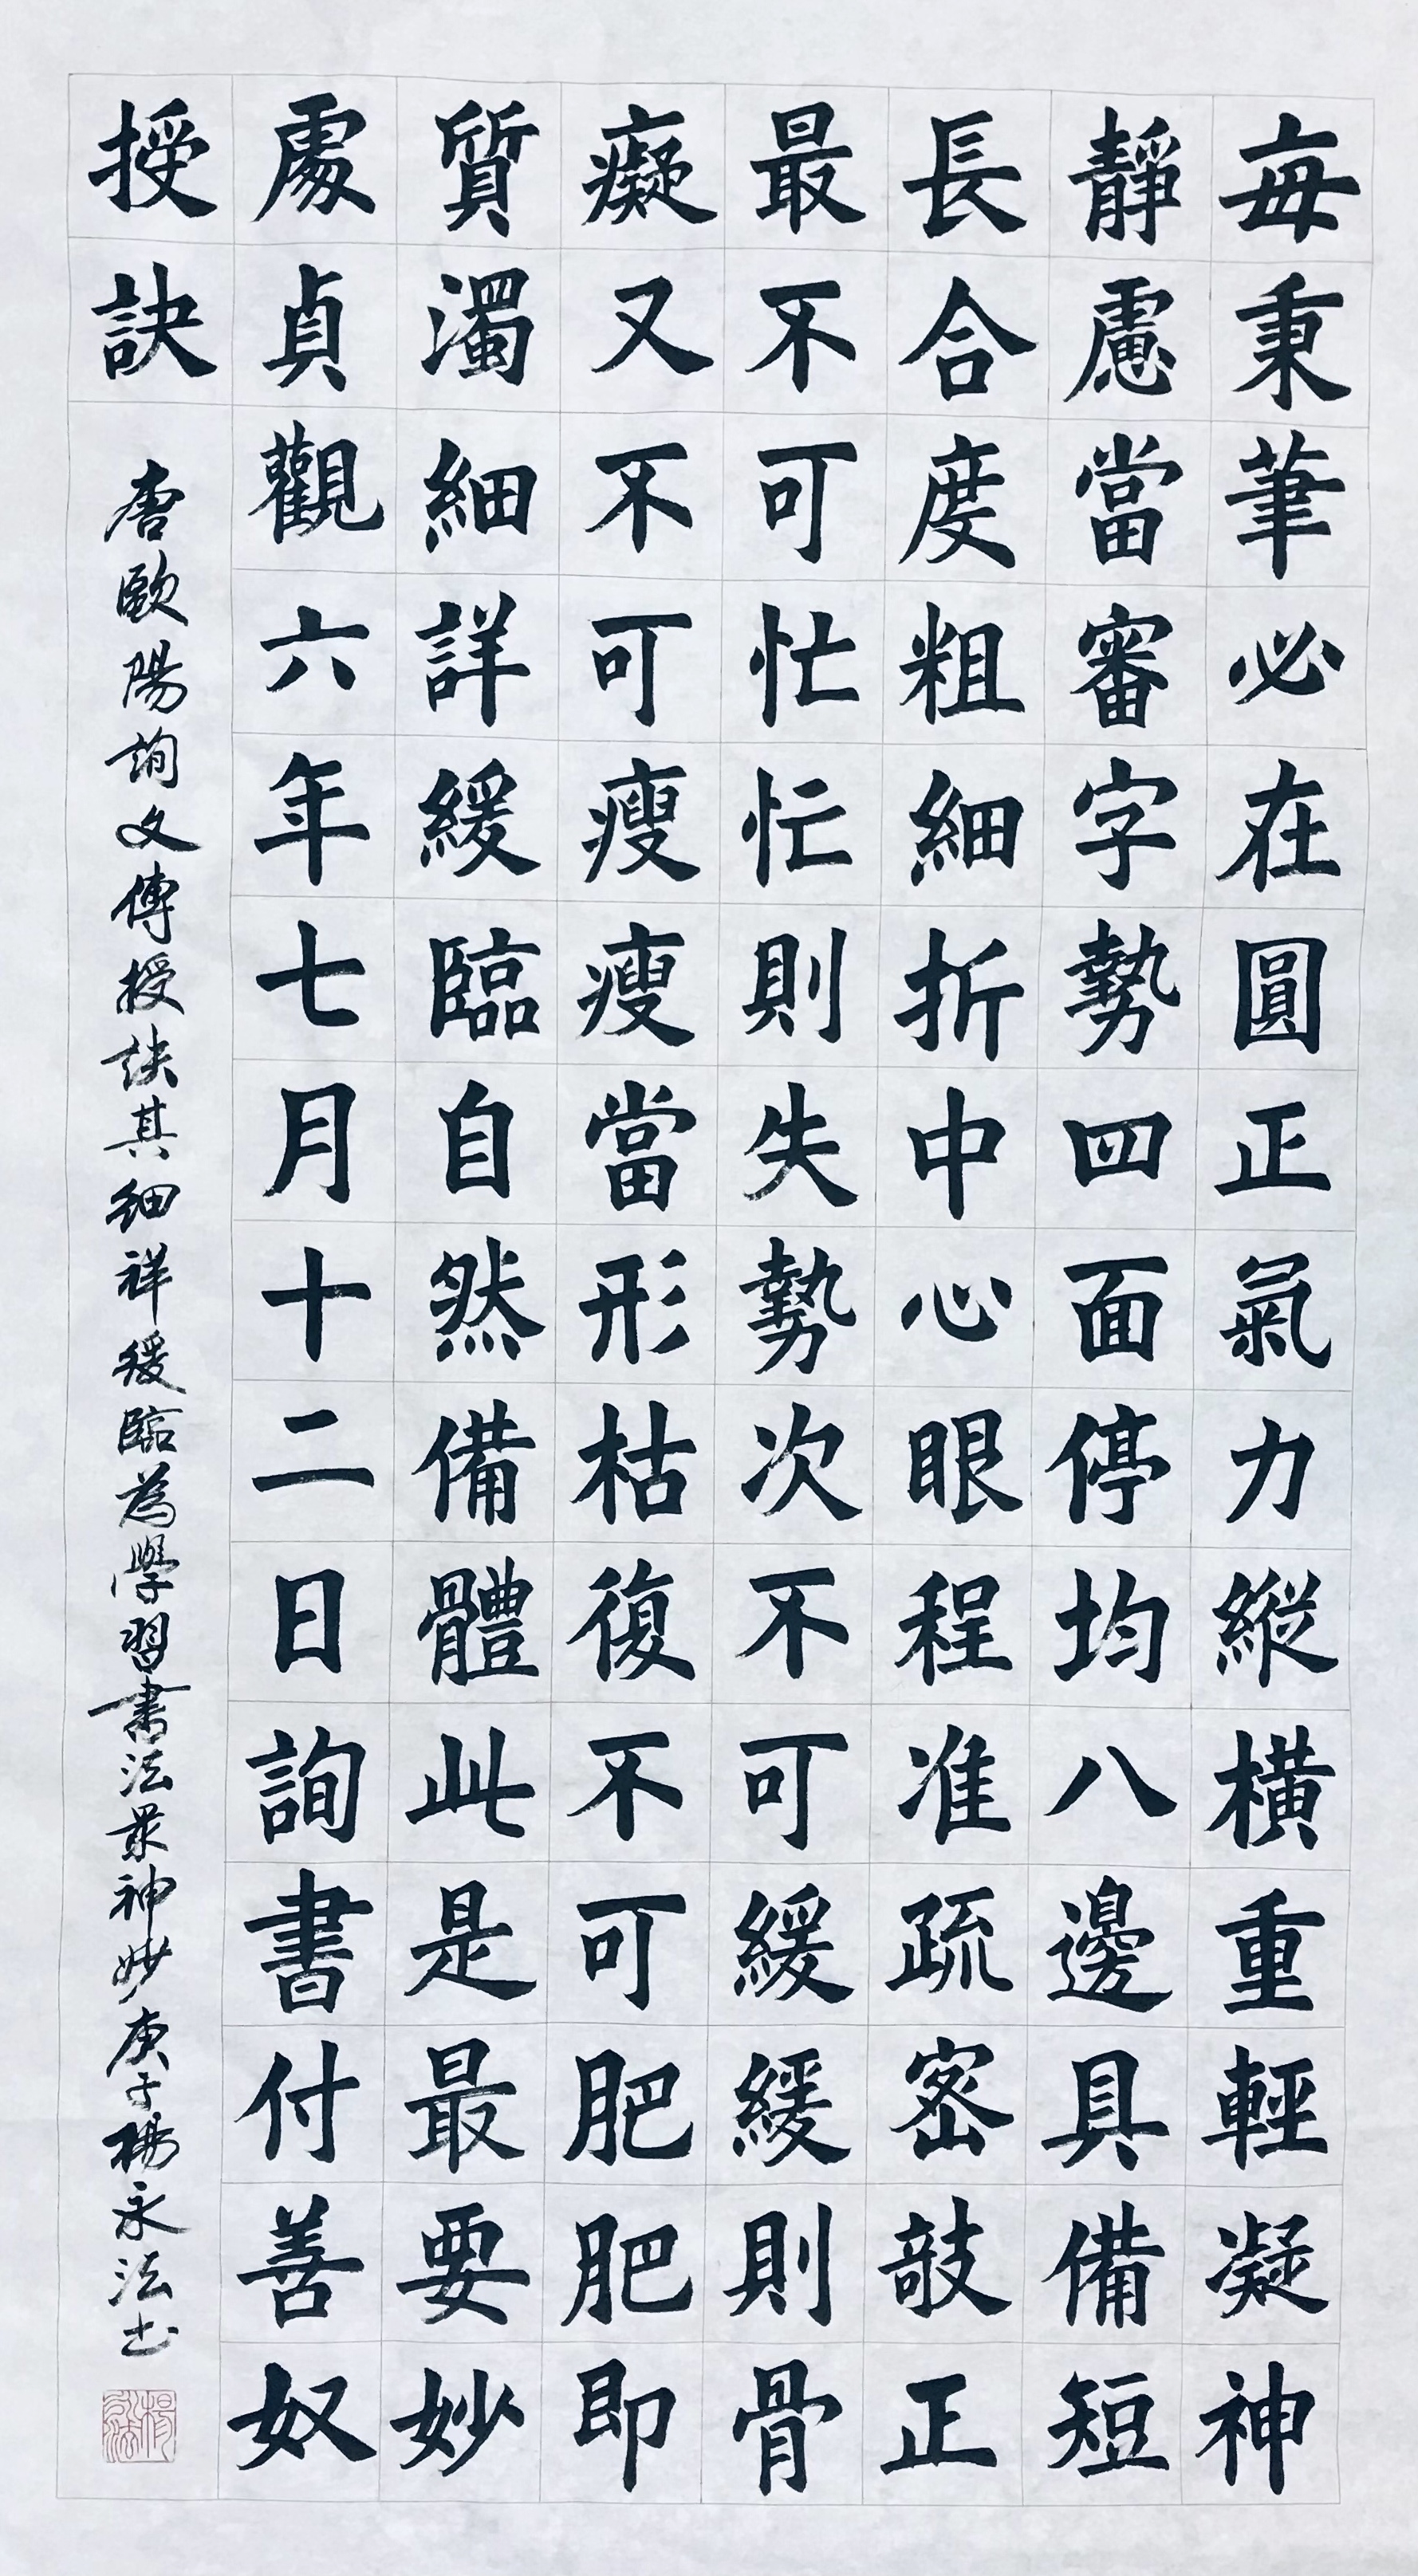 每秉筆必在圓正氣力縱橫重輕凝神
靜慮當審字勢四面停均八邊具備短
長合度粗細折中心眼程准疏密敧正
最不可忙忙則失勢次不可緩緩則骨
癡又不可瘦瘦當形枯復不可肥肥即
質濁細詳緩臨自然備體此是最要妙
處貞觀六年七月十二日詢書付善奴
授訣
唐歐陽詢文傳授訣其細祥緩臨為學習書法最神妙庚子楊永法书
楊永法